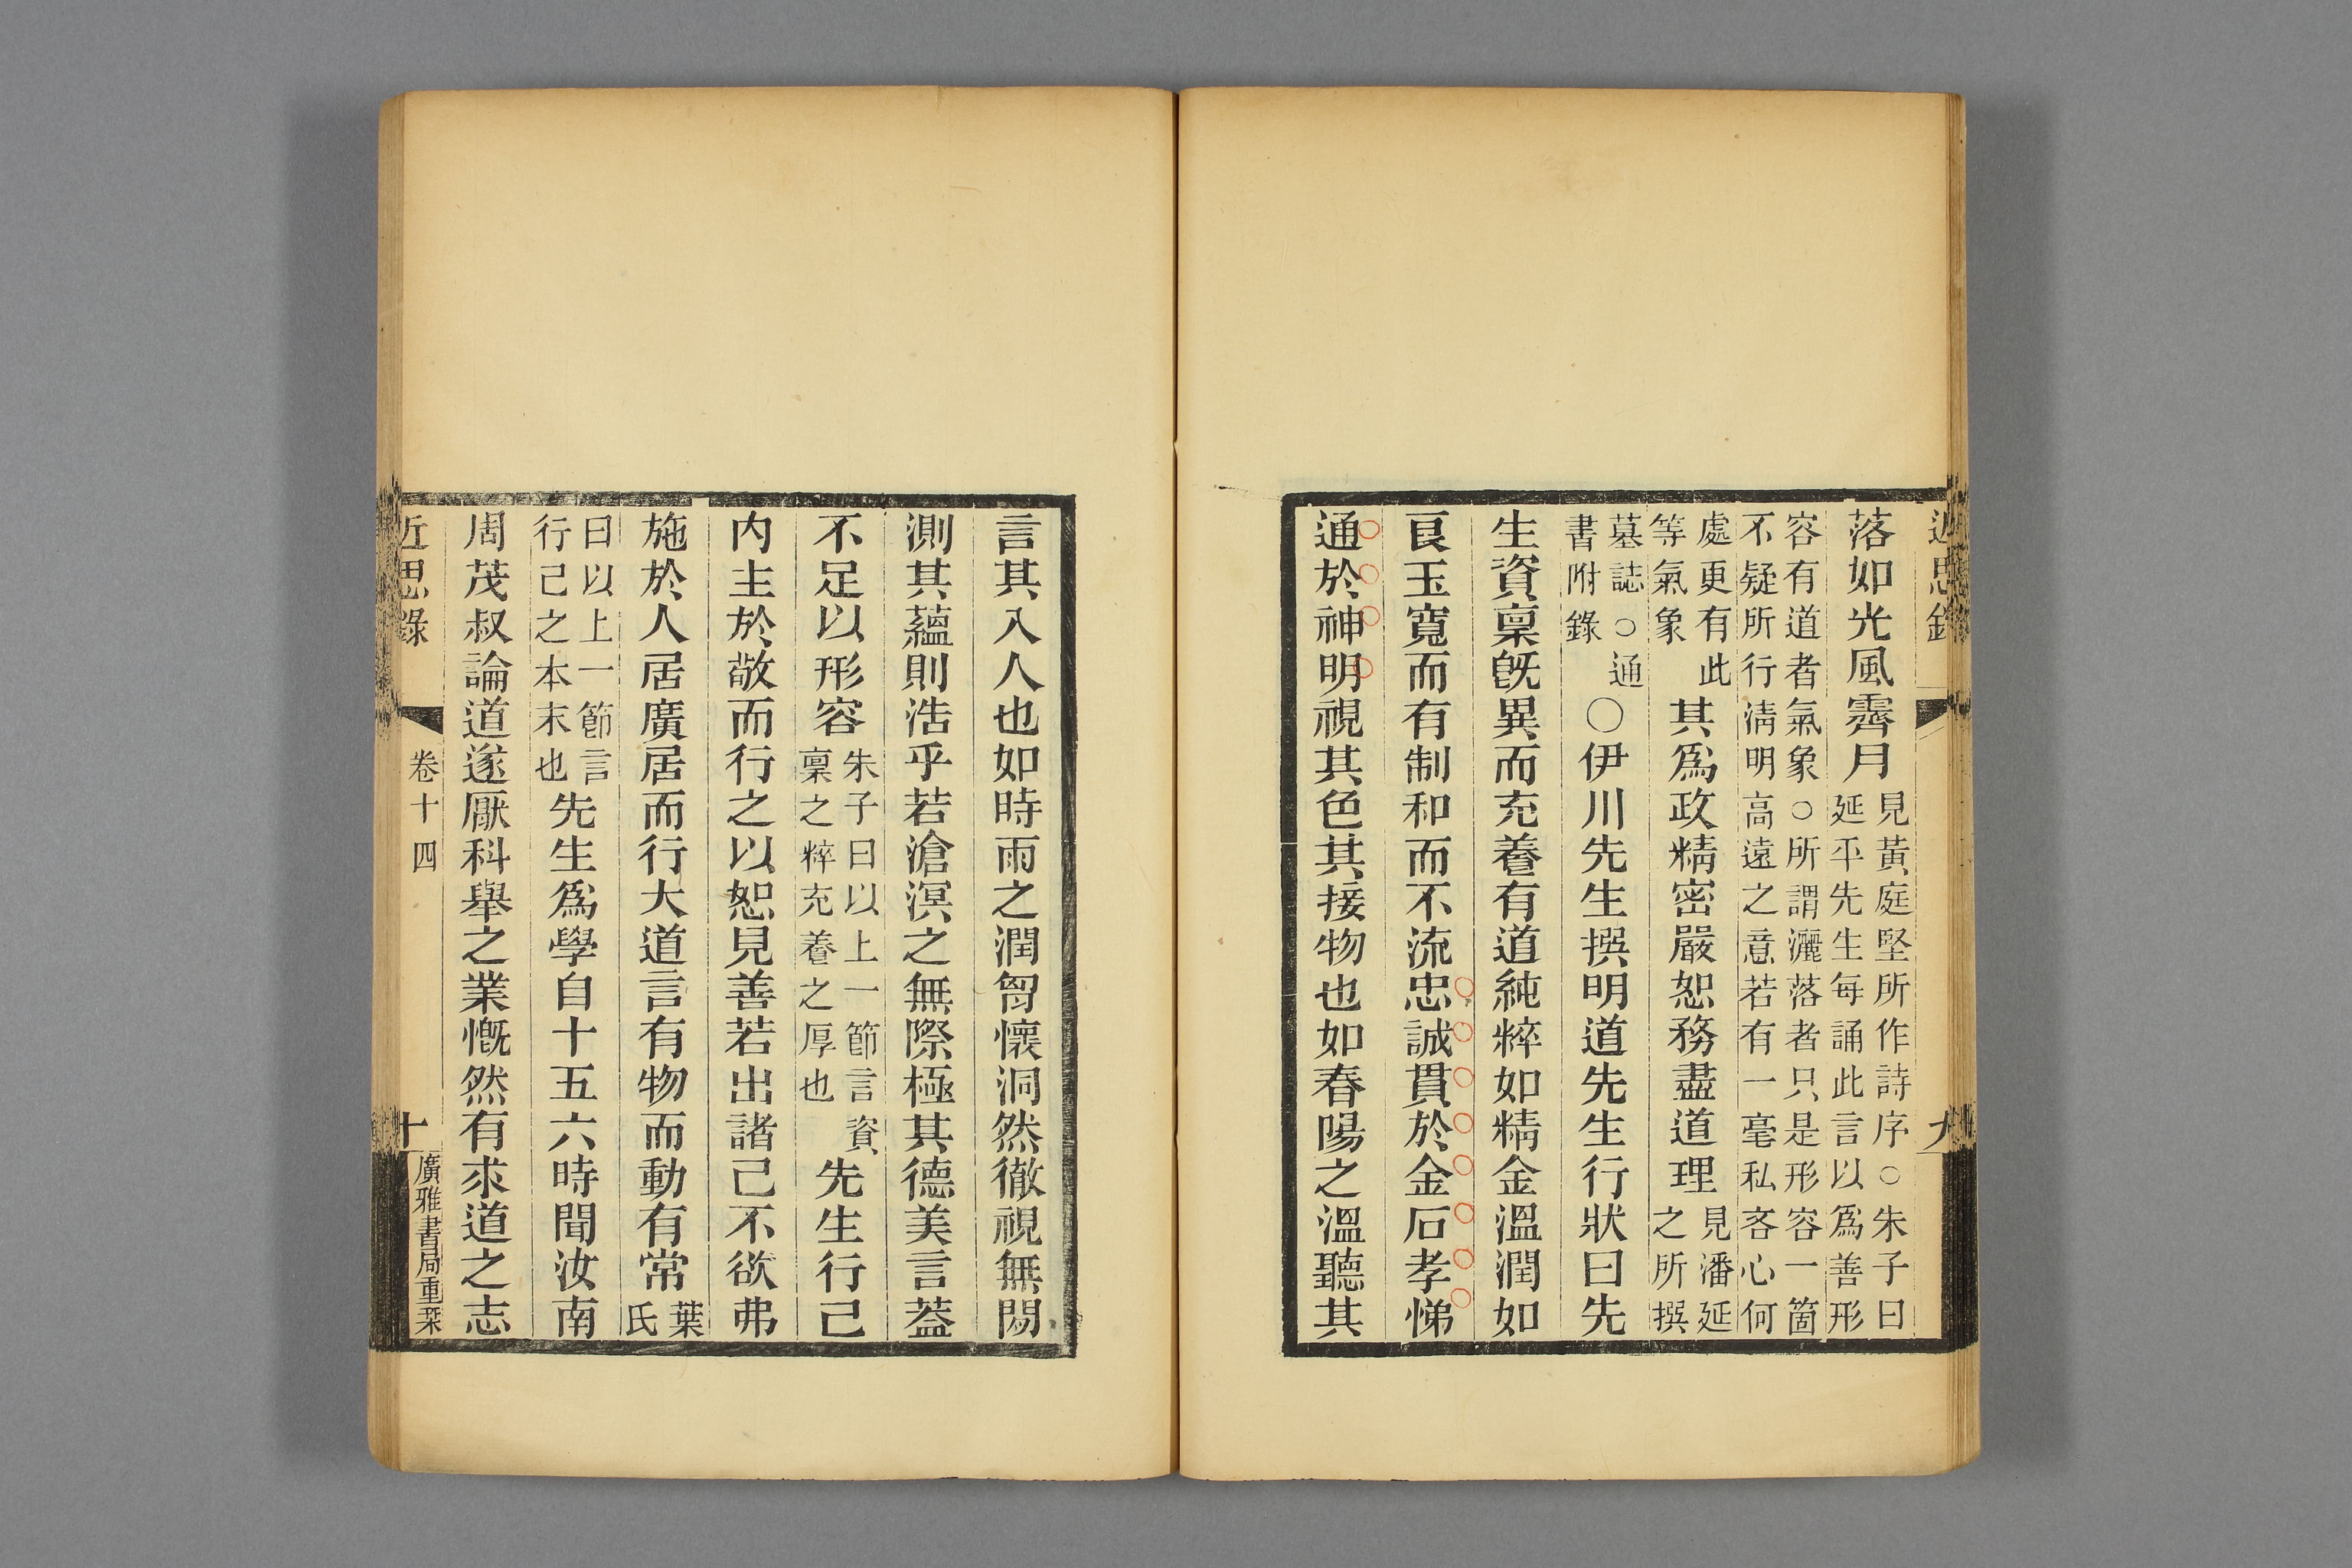 近思錄
落如光風霽月見黃庭堅所作詩序○朱子曰延平先生每誦此言以爲善形
容有道者氣象○所謂灑落者只是形容一箇不疑所行淸明高遠之意若有一毫私吝心何
處更有此等氣象其爲政精密嚴恕務盡道理見潘延之所撰
墓誌○通書附錄○伊川先生撰明道先生行狀曰先
生資稟旣異而充養有道純粹如精金溫潤如
良玉寬而有制和而不流忠誠貫於金石孝悌
通於神明視其色其接物也如春陽之溫聽其
言其入人也如時雨之潤胷懷洞然徹視無閒
測其蘊則浩乎若滄溟之無際極其德美言蓋
不足以形容朱子曰以上一節言資稟之粹充養之厚也先生行己
內主於敬而行之以恕見善若出諸己不欲弗
施於人居廣居而行大道言有物而動有常葉氏
曰以上一節言行己之本末也先生爲學自十五六時聞汝南
周茂叔論道遂厭科舉之業慨然有求道之志
近思錄 卷十四 十 廣雅書局重栞